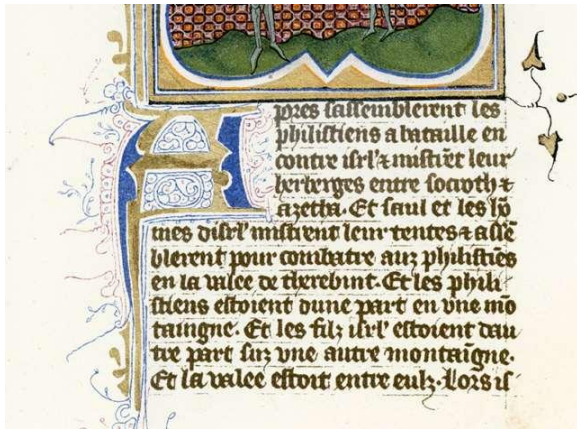 Apres sassemblerent les
philistiens a bataille en
contre isrl' & mistrẽt leur
herberges entre socoth &
azecha. Et saul et les hõ
mes disrl' mistrent leur tentes & assẽ
blerent pour combatre aux philistiẽs
en la valee de therebint. Et les phili
stiens estoient dune part en vne mõ
taingne. Et les filz isrl' estoient dau
tre part suz vne autre montaingne.
Et la valee estoit entre eulz. Lors is